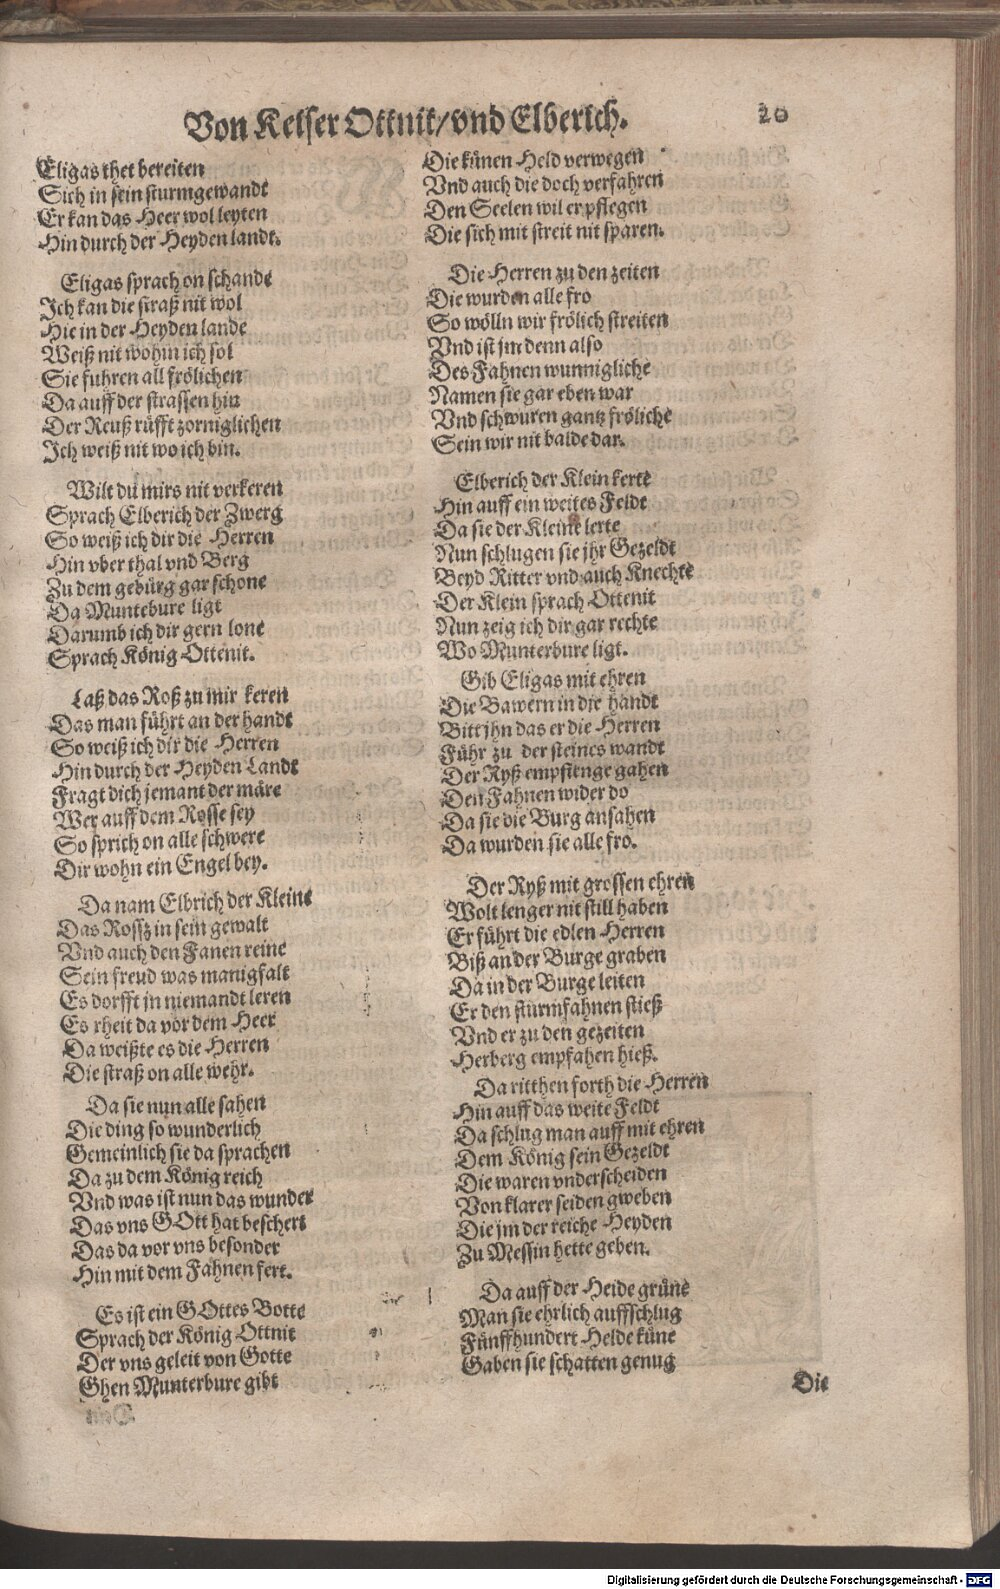 Von Keiser Ottnit/vnd Elberich.
20
Eligas thet bereiten
Sich in sein sturmgewandt
Er kan das Heer wol leyten
Hin durch der Heyden landt.
Eligas sprach on schande
Ich kan die straß nit wol
Hie in der Heyden lande
Weiß nit wohin ich sol
Sie fuhren all frölichen
Da auff der strassen hin
Der Reuß rüfft zorniglichen
Ich weiß nit wo ich bin.
Wilt du mirs nit verkeren
Sprach Elberich der Zwerg
So weiß ich dir die Herren
Hin vber thal vnd Berg
Zu dem gebürg gar schone
Da Muntebure ligt
Darumb ich dir gern lone
Sprach König Ottenit.
Laß das Roß zu mir keren
Das man führt an der handt
So weiß ich dir die Herren
Hin durch der Heyden Landt
Fragt dich jemant der märe
Wer auff dem Rosse sey
So sprich on alle schwere
Dir wohn ein Engel bey.
Da nam Elbrich der Kleine
Das Rossz in sein gewalt
Vnd auch den Fanen reine
Sein freud was manigfalt
Es dorfft jn niemandt leren
Es rheit da vor dem Heer
Da weißte es die Herren
Die straß on alle wehr.
Da sie nun alle sahen
Die ding so wunderlich
Gemeinlich sie da sprachen
Da zu dem König reich
Vnd was ist nun das wunder
Das vns GOtt hat beschert
Das da vor vns besonder
Hin mit dem Fahnen fert.
Es ist ein GOttes Botte
Sprach der König Ottnit
Der vns geleit von Gotte
Ghen Munterbure gibt
Die künen Held verwegen
Vnd auch die doch verfahren
Den Seelen wil er pflegen
Die sich mit streit nit sparen.
Die Herren zu den zeiten
Die wurden alle fro
So wölln wir frölich streiten
Vnd ist jm denn also
Des Fahnen wunnigliche
Namen sie gar eben war
Vnd schwuren gantz fröliche
Sein wir nit balde dar.
Elberich der Klein kerte
Hin auff ein weites Feldt
Da sie der Kleine lerte
Nun schlugen sie jhr Gezeldt
Beyd Ritter vnd auch Knechte
Der Klein sprach Ottenit
Nun zeig ich dir gar rechte
Wo Munterbure ligt.
Gib Eligas mit ehren
Die Bawern in die handt
Bitt jhn das er die Herren
Führ zu der steines wandt
Der Ryß empfienge gahen
Den Fahnen wider do
Da sie die Burg ansahen
Da wurden sie alle fro.
Der Ryß mit grossen ehren
Wolt lenger nit still haben
Er führt die edlen Herren
Biß an der Burge graben
Da in der Burge leiten
Er den sturmfahnen stieß
Vnd er zu den gezeiten
Herberg empfahen hieß.
Da ritthen forth die Herren
Hin auff das weite Feldt
Da schlug man auff mit ehren
Dem König sein Gezeldt
Die waren vnderscheiden
Von klarer seiden gweben
Die jm der reiche Heyden
Zu Messin hette geben.
Da auff der Heide grüne
Man sie ehrlich auffschlug
Fünffhundert Helde küne
Gaben sie schatten genug
Die
Digitalisierung gefördert durch die Deutsche Forschungsgemeinschaft - DFG